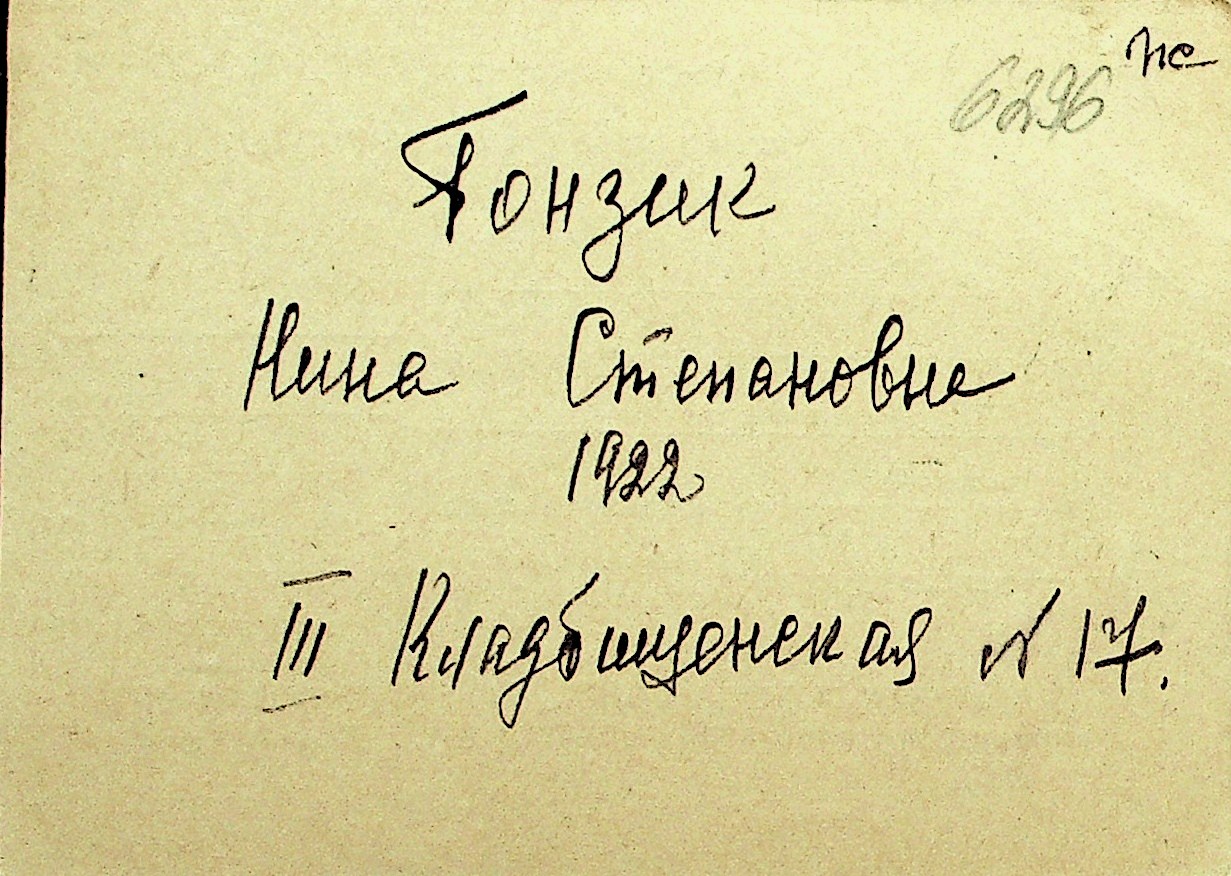 6296
Гонзик
Нина Степановна
1922
III Кладбищенская N 17.